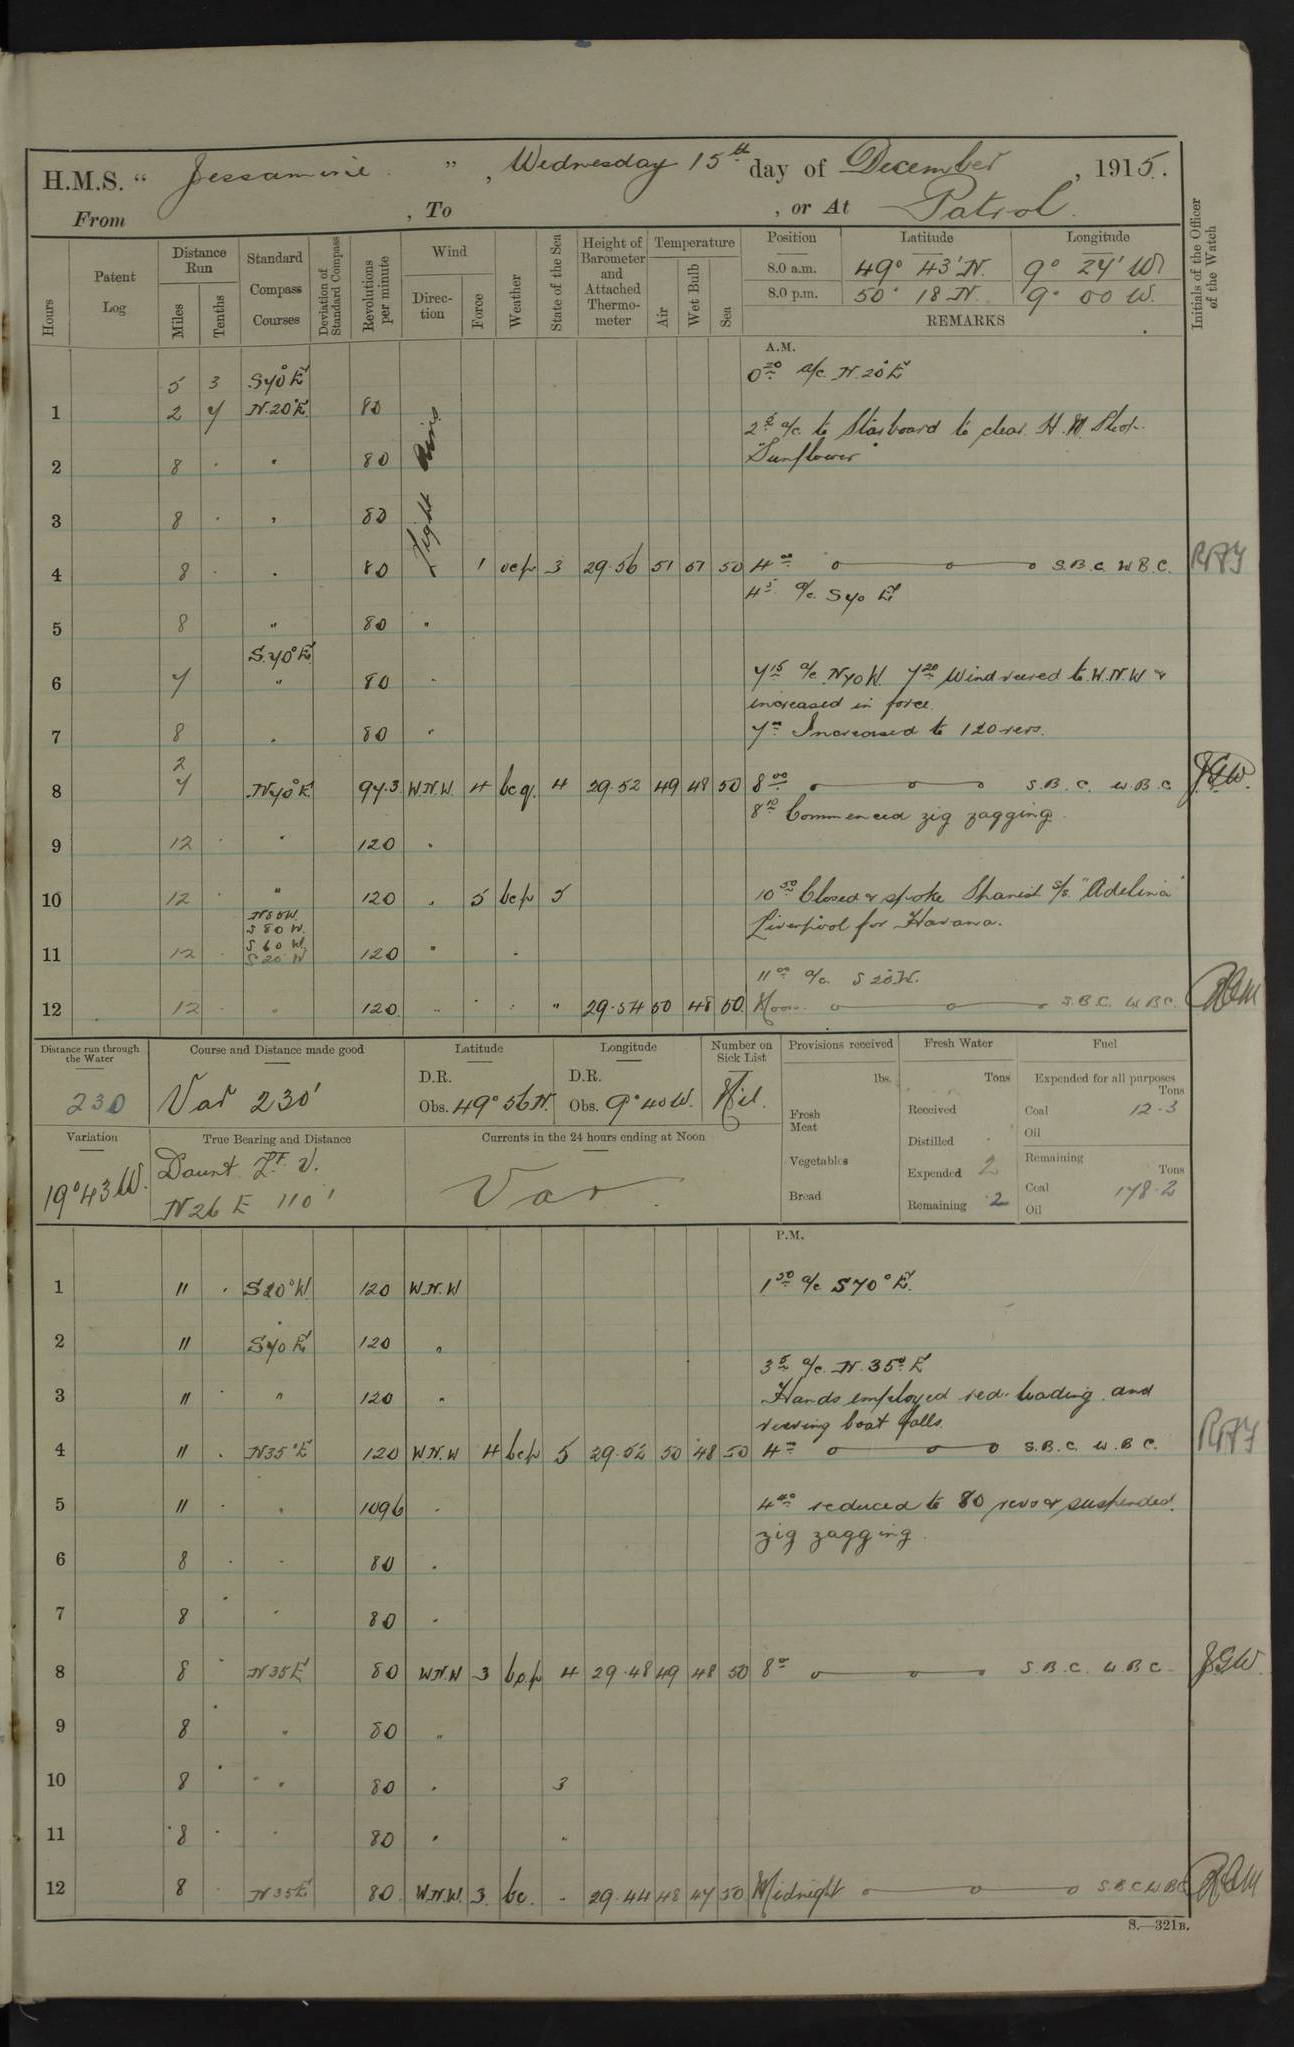 H.M.S. “ Jessamine ” , Wednesday 15th day of December , 1915.
From , To , or At Patrol.
Hours
Patent Log
Distance Run
Miles
Tenths
Standard Compass Courses
Deviation of Standard Compass
Revolutions per minute
Wind
Direction
Force
Weather
State of the Sea
Height of Barometer and Attached Thermometer
Temperature
Air
Wet Bulb
Sea
Position Latitude Longitude
8.0 a.m. 49° 43' N. 9° 24' W
8.0 p.m. 50° 18 N. 9° 00 W.
REMARKS
Initials of the Officer of the Watch
A.M.
5 3 S70°E 0 20 a/c N.20°E
1 2 7 N.20°E 80 Light Airs
2 5 a/c to Starboard to clear H.M. Sloop
2 8 . " 80 "Sunflower"
3 8 . " 80
4 8 . . 80 1 ocp 3 29.56 51 51 50 4 00 S.B.C. W.B.C.
4 5 a/c S70 E
5 8 " 80 "
S.70°E
6 7 " 80 " 7 15 a/c N70W. 7 20 Wind veered to W.N.W &
increased in force.
7 8 . 80 " 7 Increased to 120 revs.
2
8 7 N70°E 97.3 W.N.W. 4 bcq. 4 29.52 49 48 50 8 00 S.B.C. W.B.C. JGW.
8 10 Commenced zig zagging
9 12 . " 120 .
10 12 . " 120 . 5 bcp 5 10 50 Closed & spoke Spanish S/S. "Adelina"
N50W.
S80W.
S60W.
S20W
Liverpool for Havana.
11 12 . 120 "
11 00 a/c S20W.
12 12 " 120 " " 29.54 50 48 50 Noon S.B.C. W.B.C.
Distance run through the Water
230
Course and Distance made good
Var 230'
Latitude
D.R.
Obs. 49° 56 N.
Longitude
D.R.
Obs. 9° 40 W.
Number on Sick List
Nil.
Provisions received
lbs.
Fresh Meat
Vegetables
Bread
Fresh Water
Tons
Received
Distilled
Expended 2
Remaining 2
Fuel
Expended for all purposes
Tons
Coal 12.3
Oil
Remaining
Tons
Coal 178.2
Oil
Variation
19°43W.
True Bearing and Distance
Daunt Lt. V.
N26 E 110'
Currents in the 24 hours ending at Noon
Var
P.M.
1 " . S20°W. 120 W.N.W 1 30 a/c S70°E.
2 " S70E 120 "
3 5 a/c N.35°E
3 " . " 120 " Hands employed red leading and
reeving boat falls.
4 " . N35°E 120 W.N.W 4 bcp 5 29.52 50 48 50 4 S.B.C. W.B.C.
5 " . " 109.6 . 4 40 reduced to 80 revs & suspended
zig zagging.
6 8 . . 80 .
7 8 . . 80 .
8 8 . N35E 80 W.N.W 3 bcp 4 29.48 49 48 50 8 S.B.C. W.B.C. JGW.
9 8 . " 80 "
10 8 . " 80 . 3
11 8 . . 80 " "
12 8 . N35E 80 W.N.W. 3 bc. . 29.44 48 47 50 Midnight S.B.C W.B.C
S.—321B.